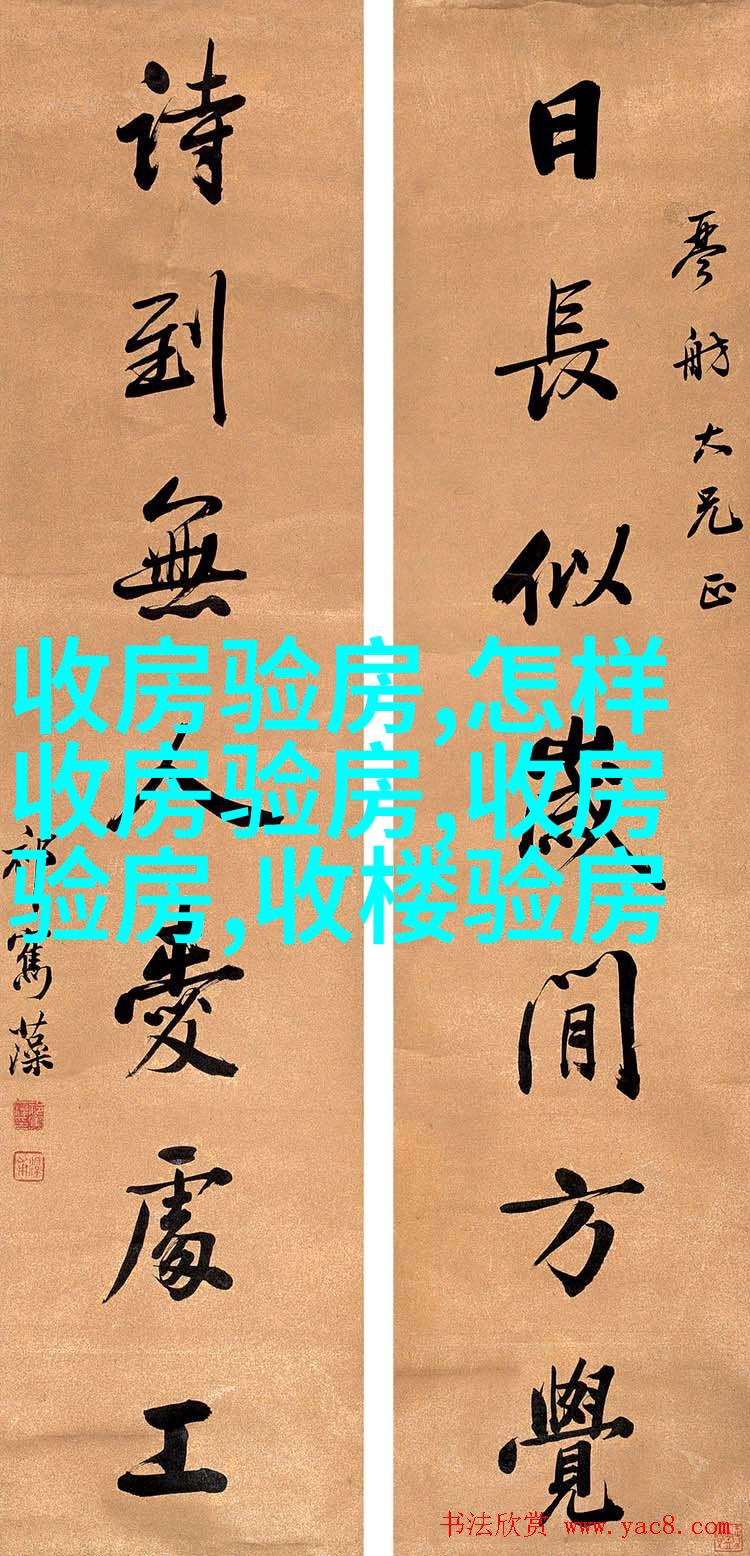 琴舫大兄正
日長似歲閒方覺
詩到無人愛處工
祁寯藻
收房验房,怎样
收房验房,收房
验房,收楼验房
书法欣赏 www.yac8.com